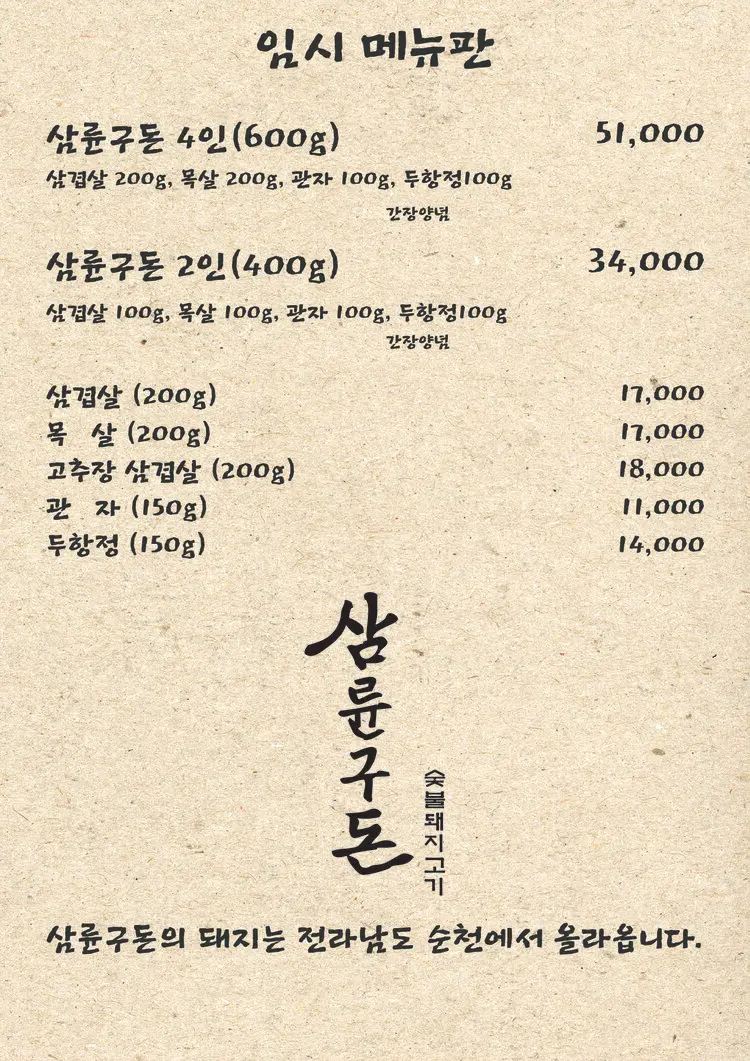 임시 메뉴판
삼륜구돈 4인(600g) 51,000
삼겹살 200g, 목살 200g, 관자 100g, 두항정100g
간장양념
삼륜구돈 2인(400g) 34,000
삼겹살 100g, 목살 100g, 관자 100g, 두항정100g
간장양념
삼겹살 (200g) 17,000
목 살 (200g) 17,000
고추장 삼겹살 (200g) 18,000
관 자 (150g) 11,000
두항정 (150g) 14,000
삼륜구돈
숯불돼지고기
삼륜구돈의 돼지는 전라남도 순천에서 올라옵니다.